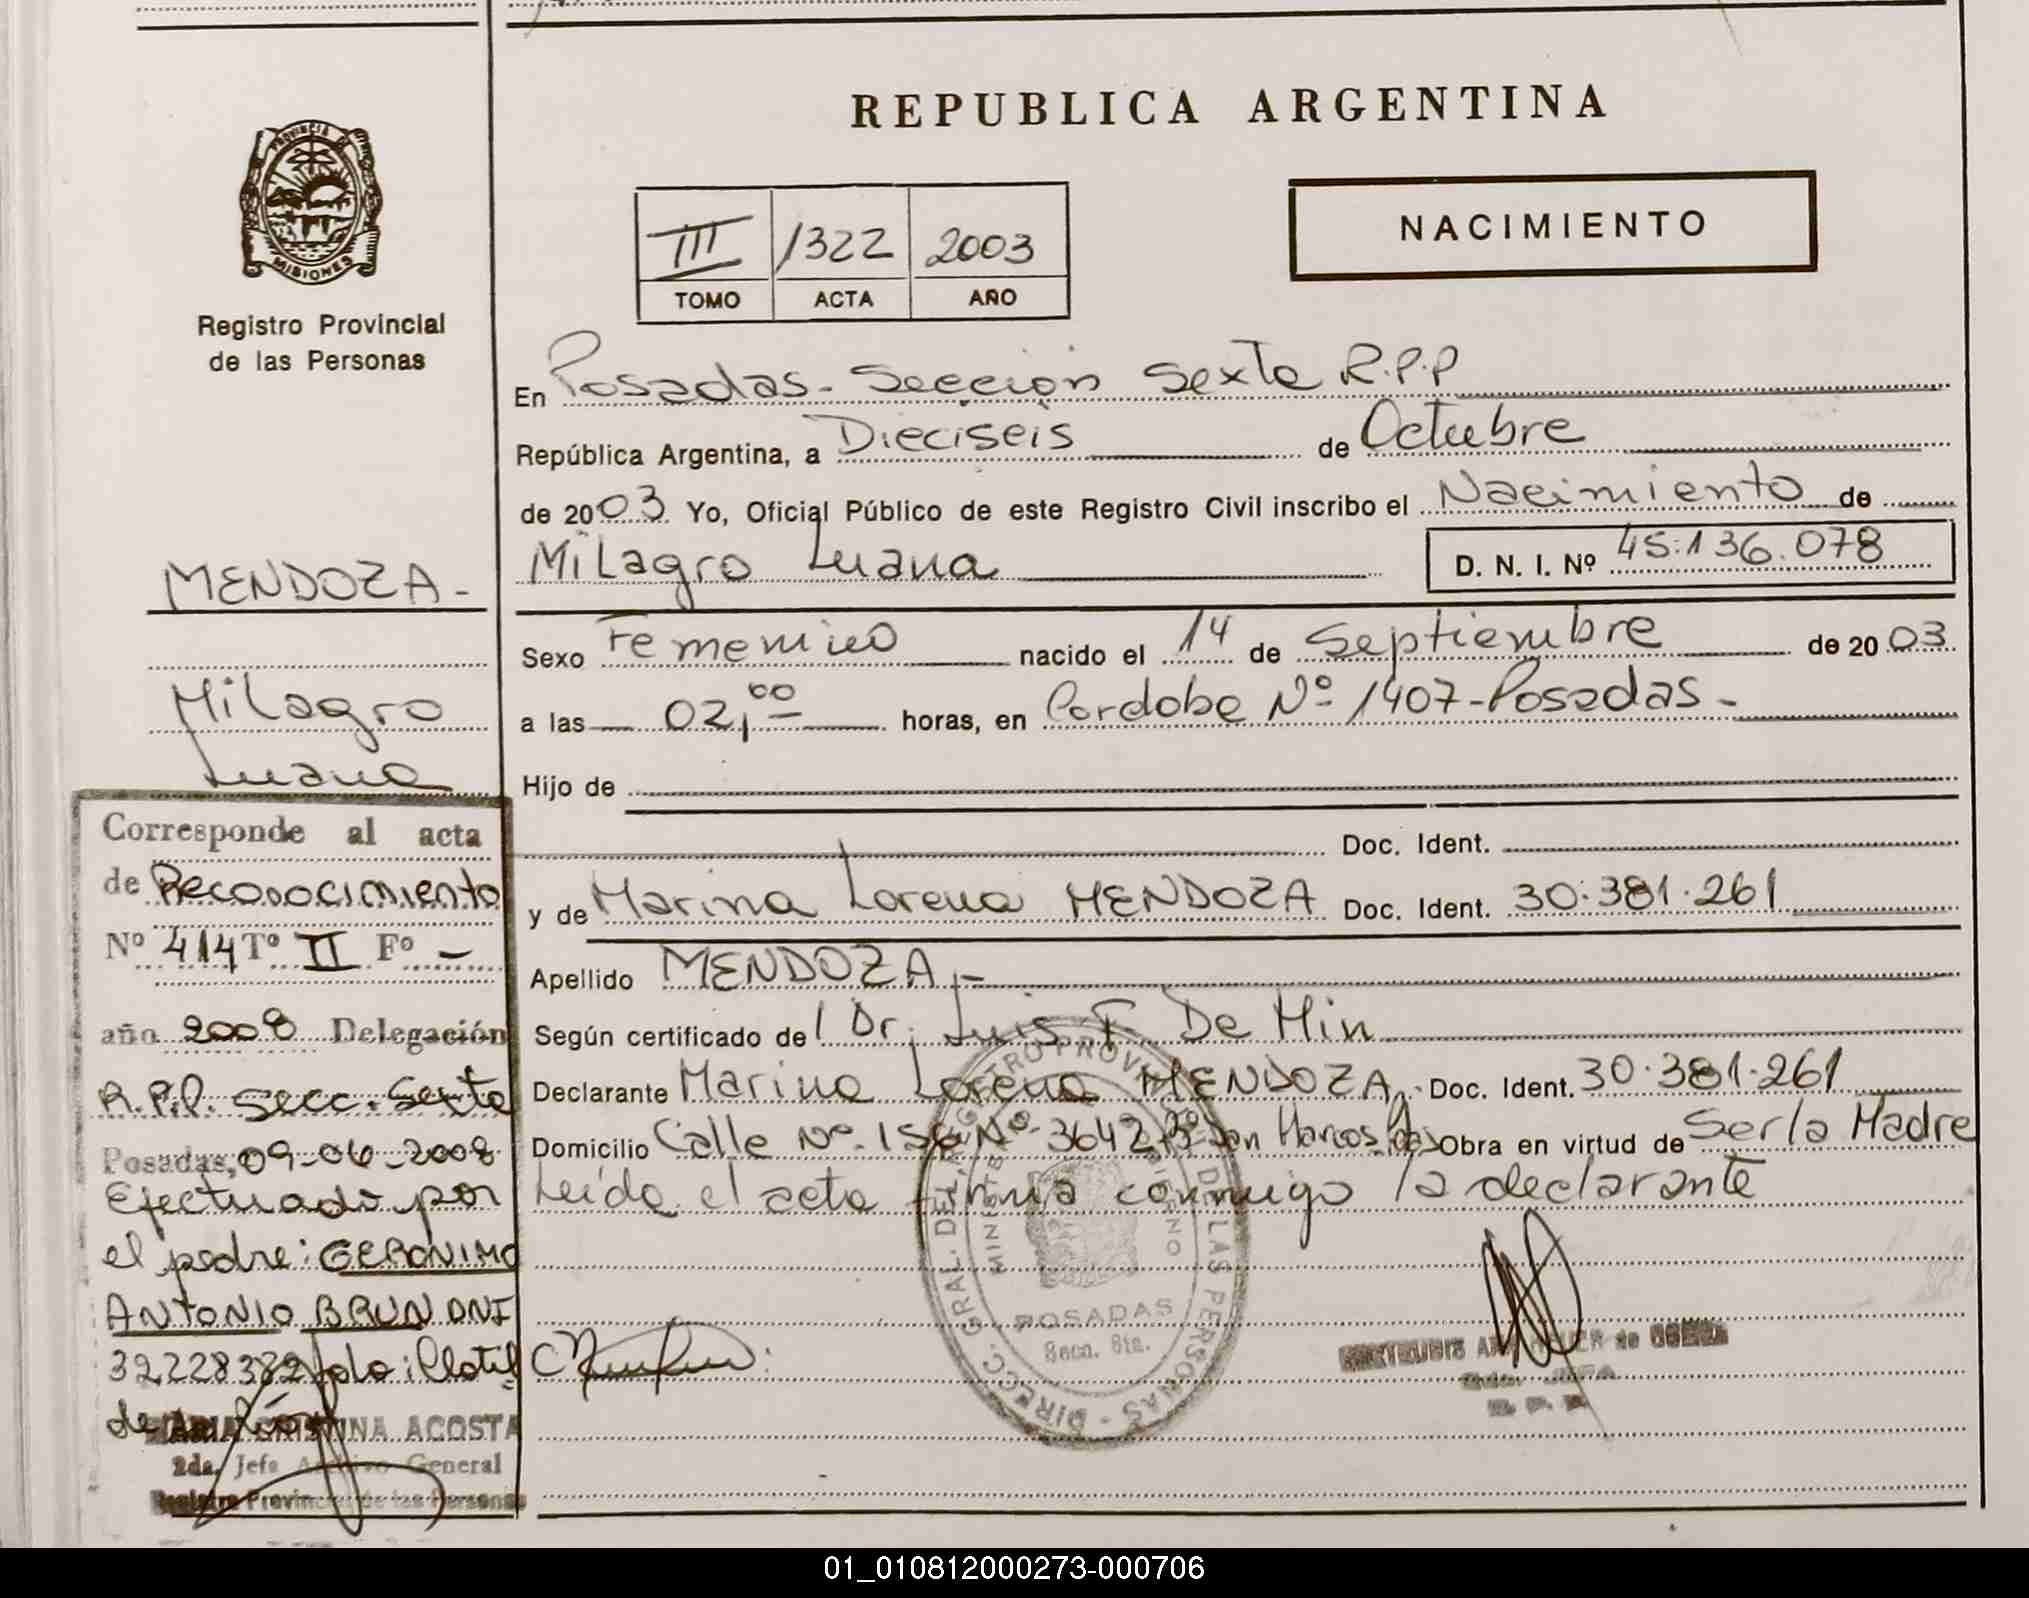 REPUBLICA ARGENTINA
PROVINCIA DE
MISIONES
Registro Provincial
de las Personas
III 1322 2003
TOMO ACTA AÑO
NACIMIENTO
En Posadas - Sección Sexta R.P.P
República Argentina, a Dieciseis de Octubre
de 2003 Yo, Oficial Público de este Registro Civil inscribo el Nacimiento de
Milagro Luana D. N. I. Nº 45.136.078
Sexo Femenino nacido el 14 de Septiembre de 2003
a las 02,00 horas, en Cordoba Nº 1407 - Posadas -
Hijo de
Doc. Ident.
y de Marina Lorena MENDOZA Doc. Ident. 30.381.261
Apellido MENDOZA.-
Según certificado de l Dr. Luis F. De Min
Declarante Marina Lorena MENDOZA.- Doc. Ident. 30.381.261
Domicilio Calle Nº 156 Nº 3642 Bº San Marcos Obra en virtud de Ser la Madre
Leída el acta firma conmigo la declarante
MENDOZA -
Milagro
Luana
Corresponde al acta
de Reconocimiento
Nº 414 Tº II Fº -
año 2008 Delegación
R.P.P. Secc. Sexta
Posadas, 09-06-2008
Efectuado por
el padre: GERONIMO
ANTONIO BRUNONI
32228382
de
MARIA CRISTINA ACOSTA
2da. Jefa Archivo General
Registro Provincial de las Personas
DIRECC. GRAL. DEL REGISTRO PROVINCIAL DE LAS PERSONAS
MINISTERIO GOBIERNO
POSADAS
Secc. 6ta.
01_010812000273-000706